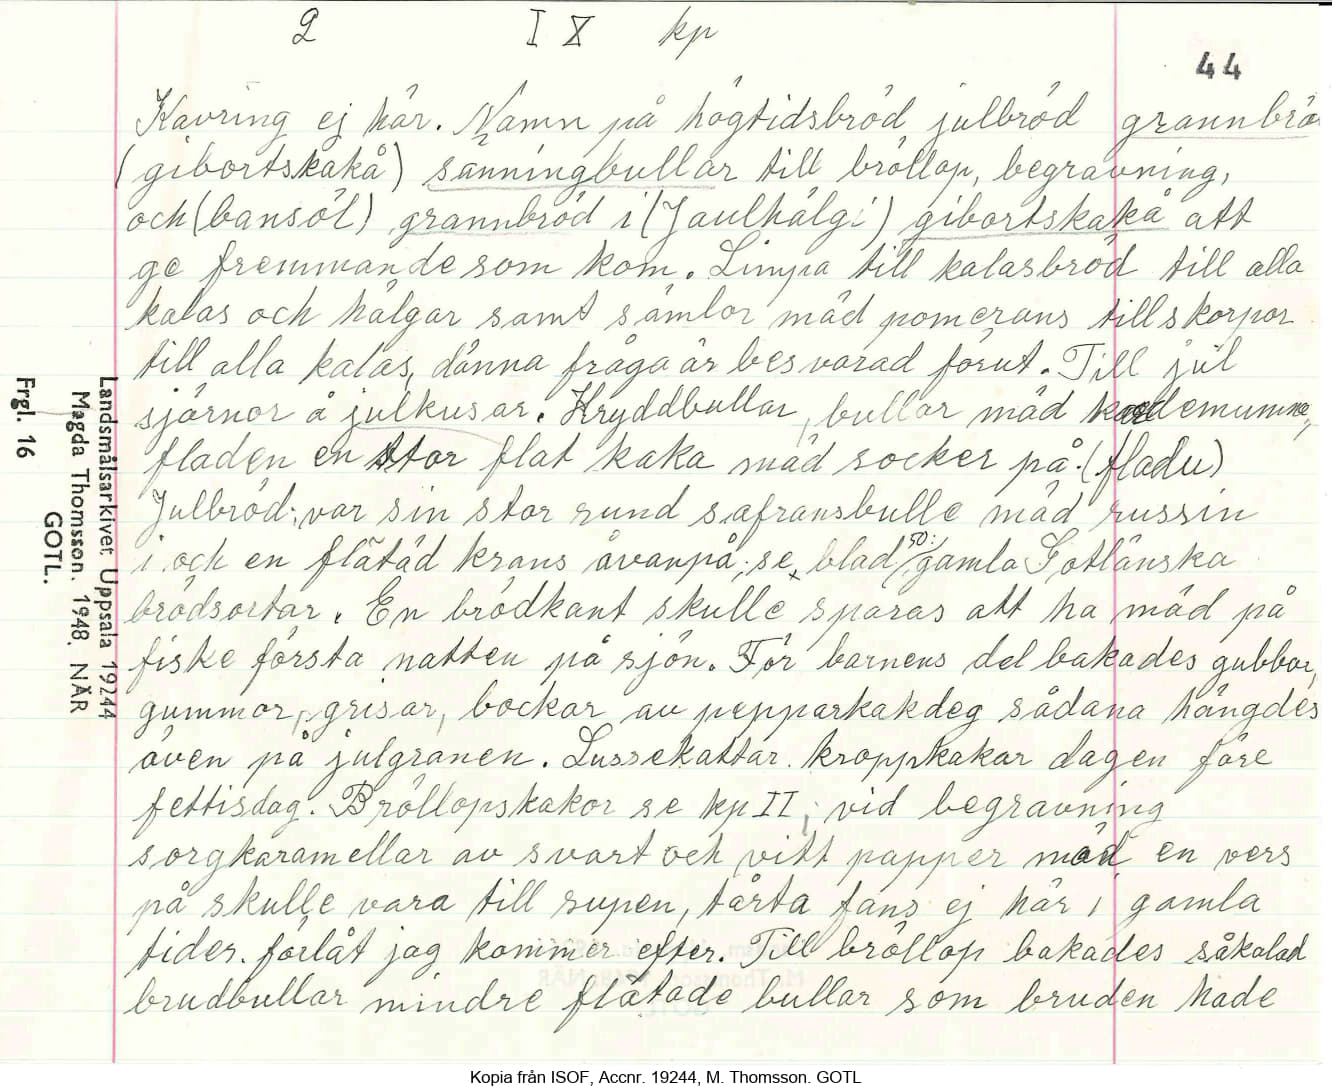 2 IX kp
44
Kavring ej här. Namn på högtidsbröd julbröd grannbrö
(gibortskakå) sänningbullar till bröllop, begravning,
och (bansöl) grannbröd i (Jaulhälgi) gibortskakå att
ge fremmande som kom. Limpa till kalasbröd till alla
kalas och hälgar samt sämlor mäd pomerans till skorpor
till alla kalas, dänna fråga är besvarad förut. Till jul
sjärnor å julkusar. Kryddbullar, bullar mäd kardemumma,
fladen en stor flat kaka mäd socker på. (fladu)
Julbröd; var sin stor rund safransbulle mäd russin
i och en flätad krans åvanpå; se blad 50:/ gamla Gotlänska
brödsortar. En brödkant skulle sparas att ha mäd på
fiske första natten på sjön. För barnens del bakades gubbar,
gummor, grisar, bockar av pepparkakdeg sådana hängdes
även på julgranen. Lussekattar. kroppkakar dagen före
fettisdag. Bröllopskakor se kp II; vid begravning
sorgkaramellar av svart och vitt papper mäd en vers
på skulle vara till supen, tårta fans ej här i gamla
tider. förlåt jag kommer efter. Till bröllop bakades såkalad
brudbullar mindre flätade bullar som bruden hade
Landsmålsarkivet Uppsala 19244
Magda Thomsson. 1948. NÄR
GOTL.
Frgl. 16
Kopia från ISOF, Accnr. 19244, M. Thomsson. GOTL